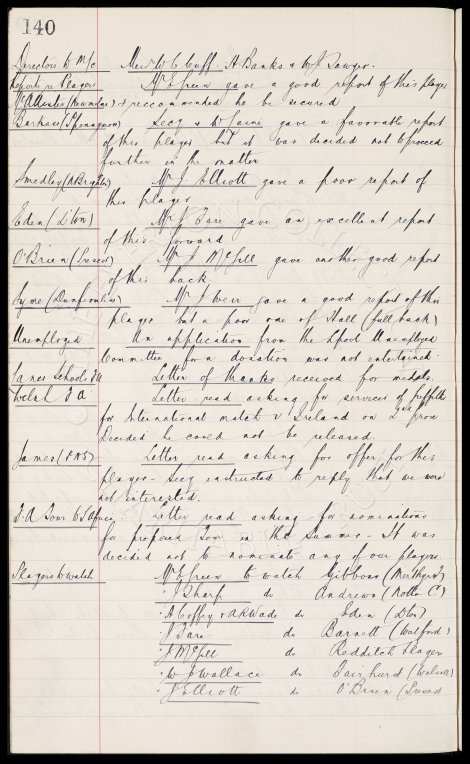 140
Directors to M/c Messrs W. C. Cuff. A. Banks & W. J. Sawyer.
Reports re Players Mr E. Green gave a good report of this player
McAlinden (Newmains) & recommended he be secured
Barkas (Spennymoor) Secy & W Cairns gave a favorable report
of this player but it was decided not to proceed
further in the matter
Smedley (N Brighton) Mr J. Elliott gave a poor report of
this player
Eden (D'ton) Mr J. Fare gave an excellent report
of this forward
O'Brien (Swansea) Mr J. McGill gave another good report
of this back
Syme (Dunfermline) Mr J Weir gave a good report of this
player but a poor one of Hall (full back)
Unemployed An application from the L'pool Unemployed
Committee for a donation was not entertained.
Lancs Schools FA Letter of thanks received for medals.
Welsh F A Letter read asking for services of Griffiths
for International match v Ireland on 2nd prox
Decided he could not be released.
James (PNE) Letter read asking for offer for this
player - Secy instructed to reply that we were
not interested.
F.A Tour to S Africa Letter read asking for nominations
for proposed Tour in the Summer - It was
decided not to nominate any of our players.
Players to watch Mr E Green to watch Gibbons (Merthyr T)
" J Sharp do Andrews (Notts C)
" A Coffey & A R Wade do Eden (D'ton)
" J Fare do Barnett (Watford)
" J McGill do Redditch Player
" W J Wallace do Fairhurst (Walsall)
" J Elliott do O'Brien (Swansea)